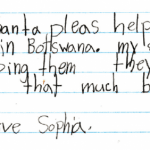 anta pleas help
in Botswana. my s
ping them they
that much b
ve Sophia.